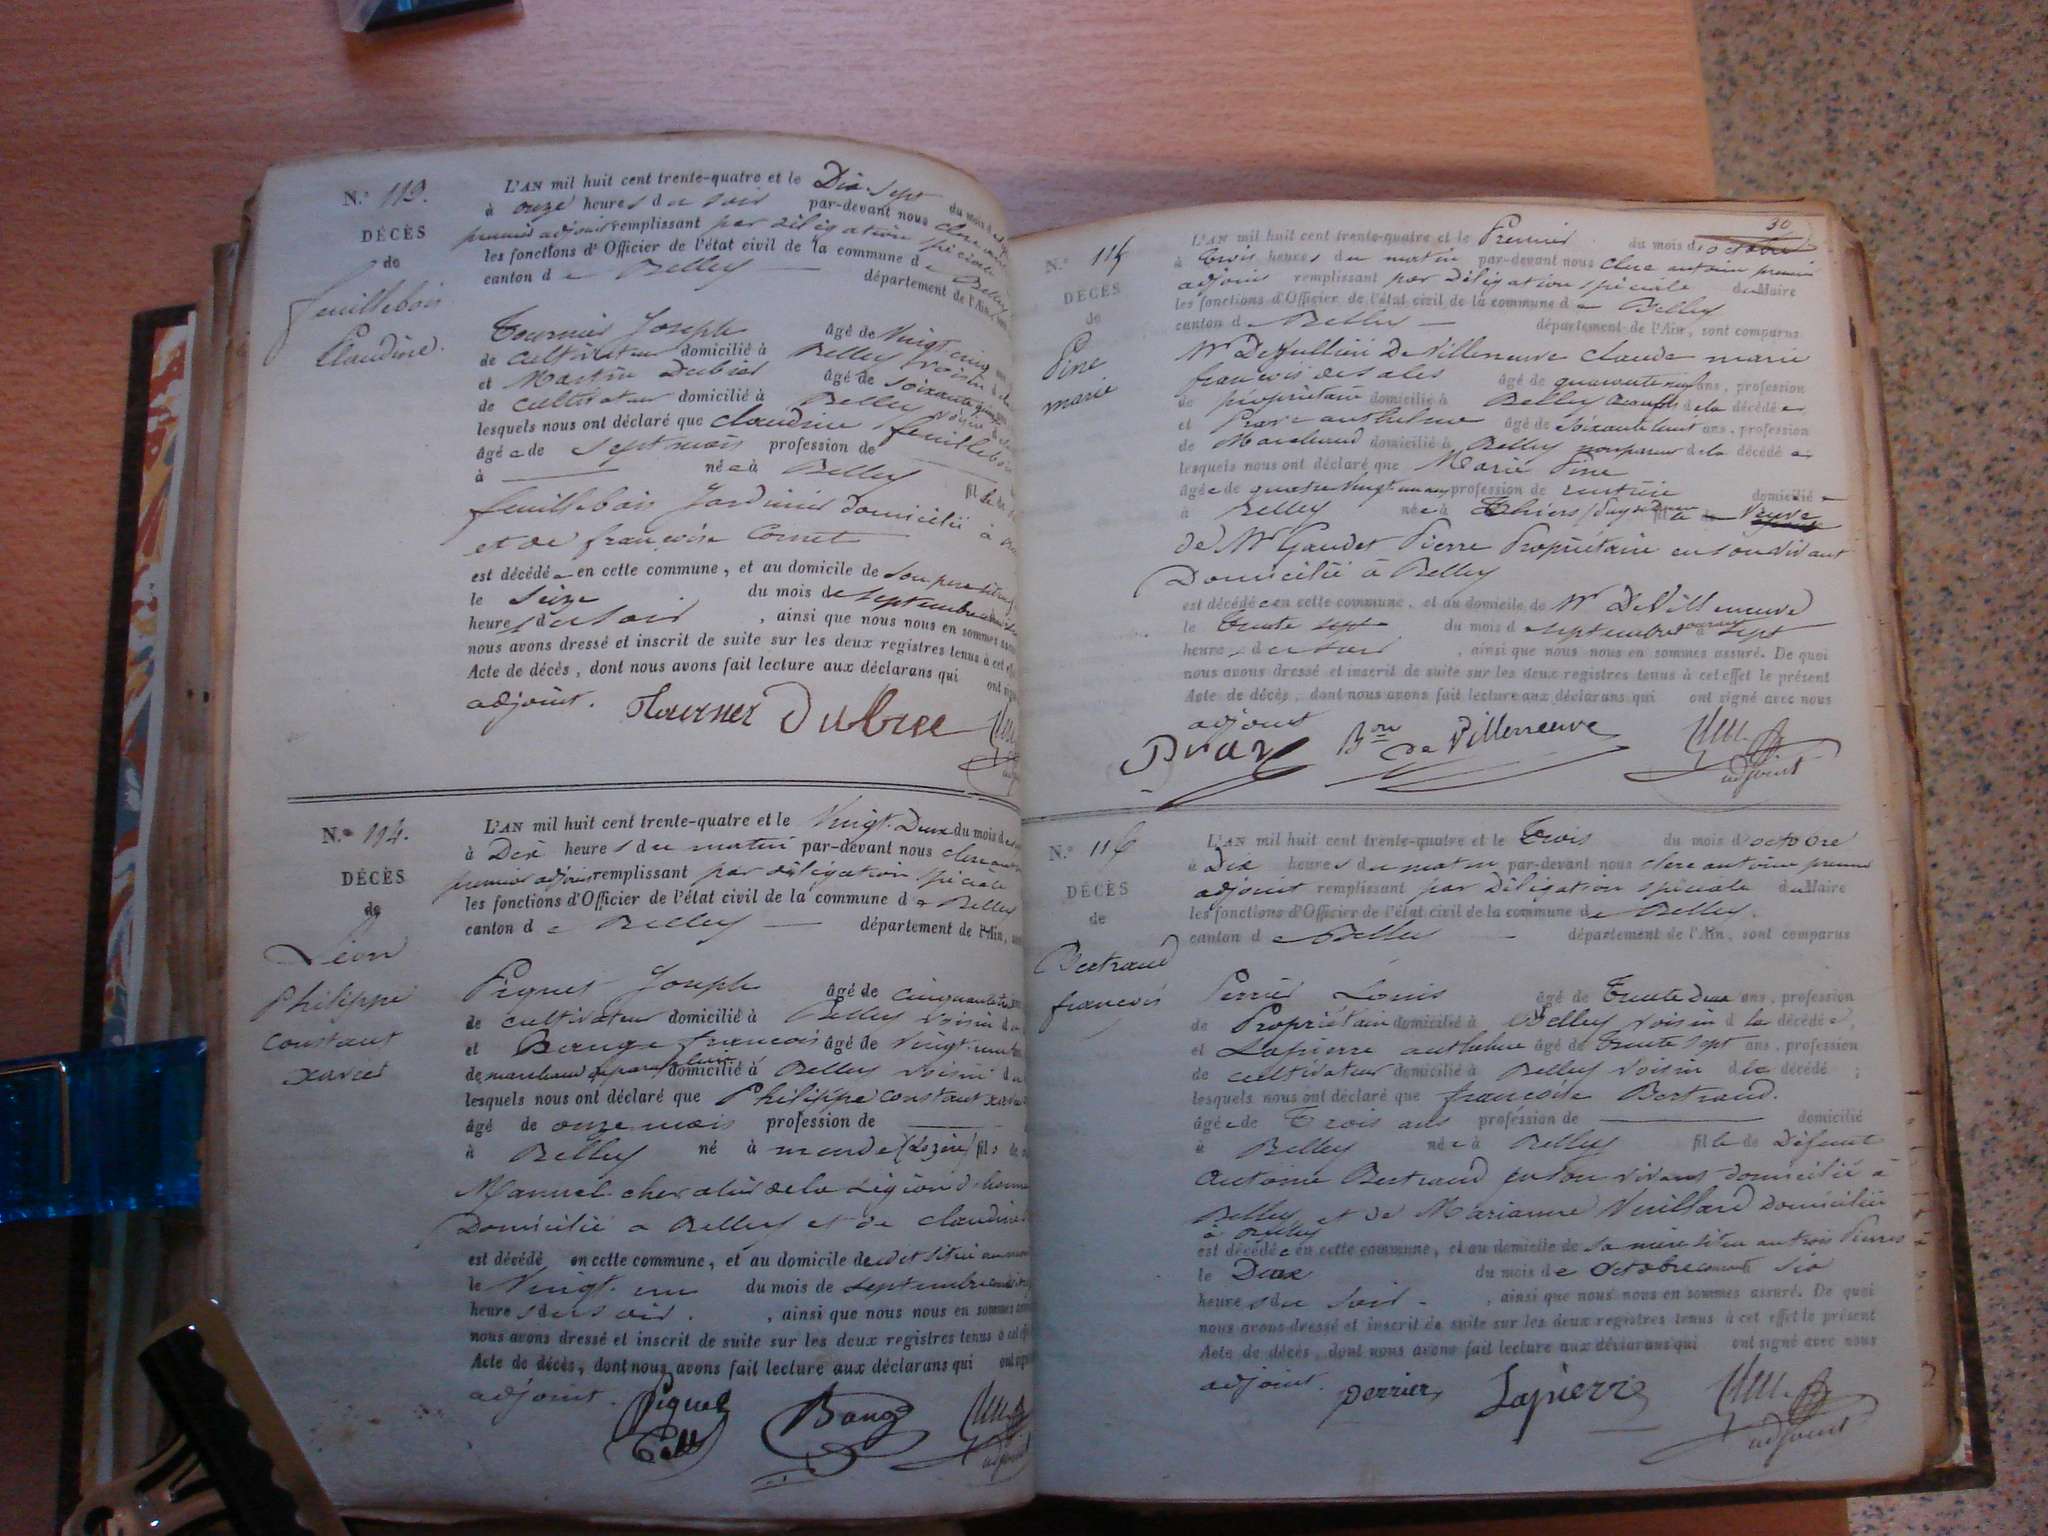 N.º 113.
DÉCÈS
de
feuillebois
Claudine.
L'AN mil huit cent trente-quatre et le Dix-sept du mois de
à onze heures du soir par-devant nous
premier adjoint remplissant par délégation spéciale
les fonctions d'Officier de l'état civil de la commune de Belley
canton de Belley — département de l'Ain,
Tournier Joseph âgé de Vingt cinq
de cultivateur domicilié à Belley voisin
et Martin Dubies âgé de soixante
de cultivateur domicilié à Belley voisin
lesquels nous ont déclaré que Claudine feuillebois
âgée de sept mois profession de
à — née à Belley fille de
feuillebois Jardinier domicilié à
et de françoise Cornet
est décédée en cette commune, et au domicile de son père
le Seize du mois de septembre
heures du soir, ainsi que nous nous en sommes
nous avons dressé et inscrit de suite sur les deux registres tenus à cet
Acte de décès, dont nous avons fait lecture aux déclarans qui ont
adjoint.
N.º 114.
DÉCÈS
de
Léon
Philippe
Constant
xavier
L'AN mil huit cent trente-quatre et le Vingt-Deux du mois de
à Dix heures du matin par-devant nous
premier adjoint remplissant par délégation spéciale
les fonctions d'Officier de l'état civil de la commune de Belley
canton de Belley — département de l'Ain,
Piquet Joseph âgé de cinquante
de cultivateur domicilié à Belley voisin
et françois âgé de Vingt
de marchand de parapluie domicilié à Belley voisin du
lesquels nous ont déclaré que Philippe Constant
âgé de onze mois profession de
à Belley né à mende (Lozère) fils de
Manuel chevalier de la Légion d'honneur
Domicilié à Belley et de Claudine
est décédé en cette commune, et au domicile
le Vingt-un du mois de septembre
heures du soir. , ainsi que nous nous en sommes
nous avons dressé et inscrit de suite sur les deux registres tenus à cet
Acte de décès, dont nous avons fait lecture aux déclarans qui ont
adjoint.
Piquet
30
N.º 115
DÉCÈS
de
Pine
marie
L'AN mil huit cent trente-quatre et le Premier du mois de octobre
à trois heures du matin par-devant nous Clerc antoine premier
adjoint remplissant par Délégation spéciale du Maire
les fonctions d'Officier de l'état civil de la commune de Belley
canton de Belley — département de l'Ain, sont comparus
Mr De Villeneuve claude marie
françois de sales âgé de quarante ans, profession
de propriétaire domicilié à Belley de la décédée
et anthelme âgé de soixante huit ans, profession
de Marchand domicilié à Belley de la décédée
lesquels nous ont déclaré que Marie Pine
âgée de quatre vingt un ans profession de rentière domiciliée
à Belley née à Thiers Veuve
de Mr Gaudet Pierre Propriétaire en son vivant
Domicilié à Belley
est décédée en cette commune, et au domicile de Mr De Villeneuve
le Trente du mois de septembre à sept
heures du soir, ainsi que nous nous en sommes assuré. De quoi
nous avons dressé et inscrit de suite sur les deux registres tenus à cet effet le présent
Acte de décès, dont nous avons fait lecture aux déclarans qui ont signé avec nous
adjoint
Bon de Villeneuve
adjoint
N.º 116
DÉCÈS
de
Bertrand
françoise
L'AN mil huit cent trente-quatre et le trois du mois d'octobre
à Dix heures du matin par-devant nous Clerc antoine premier
adjoint remplissant par Délégation spéciale du Maire
les fonctions d'Officier de l'état civil de la commune de Belley.
canton de Belley — département de l'Ain, sont comparus
Perrier Louis âgé de Trente deux ans, profession
de Propriétaire domicilié à Belley voisin de la décédée,
et Lapierre anthelme âgé de Trente sept ans, profession
de cultivateur domicilié à Belley voisin de la décédée ;
lesquels nous ont déclaré que françoise Bertrand.
âgée de Trois ans profession de — domicilié
à Belley née à Belley fille de Défunt
Antoine Bertrand en son vivant domicilié à
Belley et de Marianne Domiciliée
à Belley
est décédée en cette commune, et au domicile de sa mère situé
le Deux du mois de Octobre six
heures du soir. , ainsi que nous nous en sommes assuré. De quoi
nous avons dressé et inscrit de suite sur les deux registres tenus à cet effet le présent
Acte de décès, dont nous avons fait lecture aux déclarans qui ont signé avec nous
adjoint. perrier Lapierre
adjoint